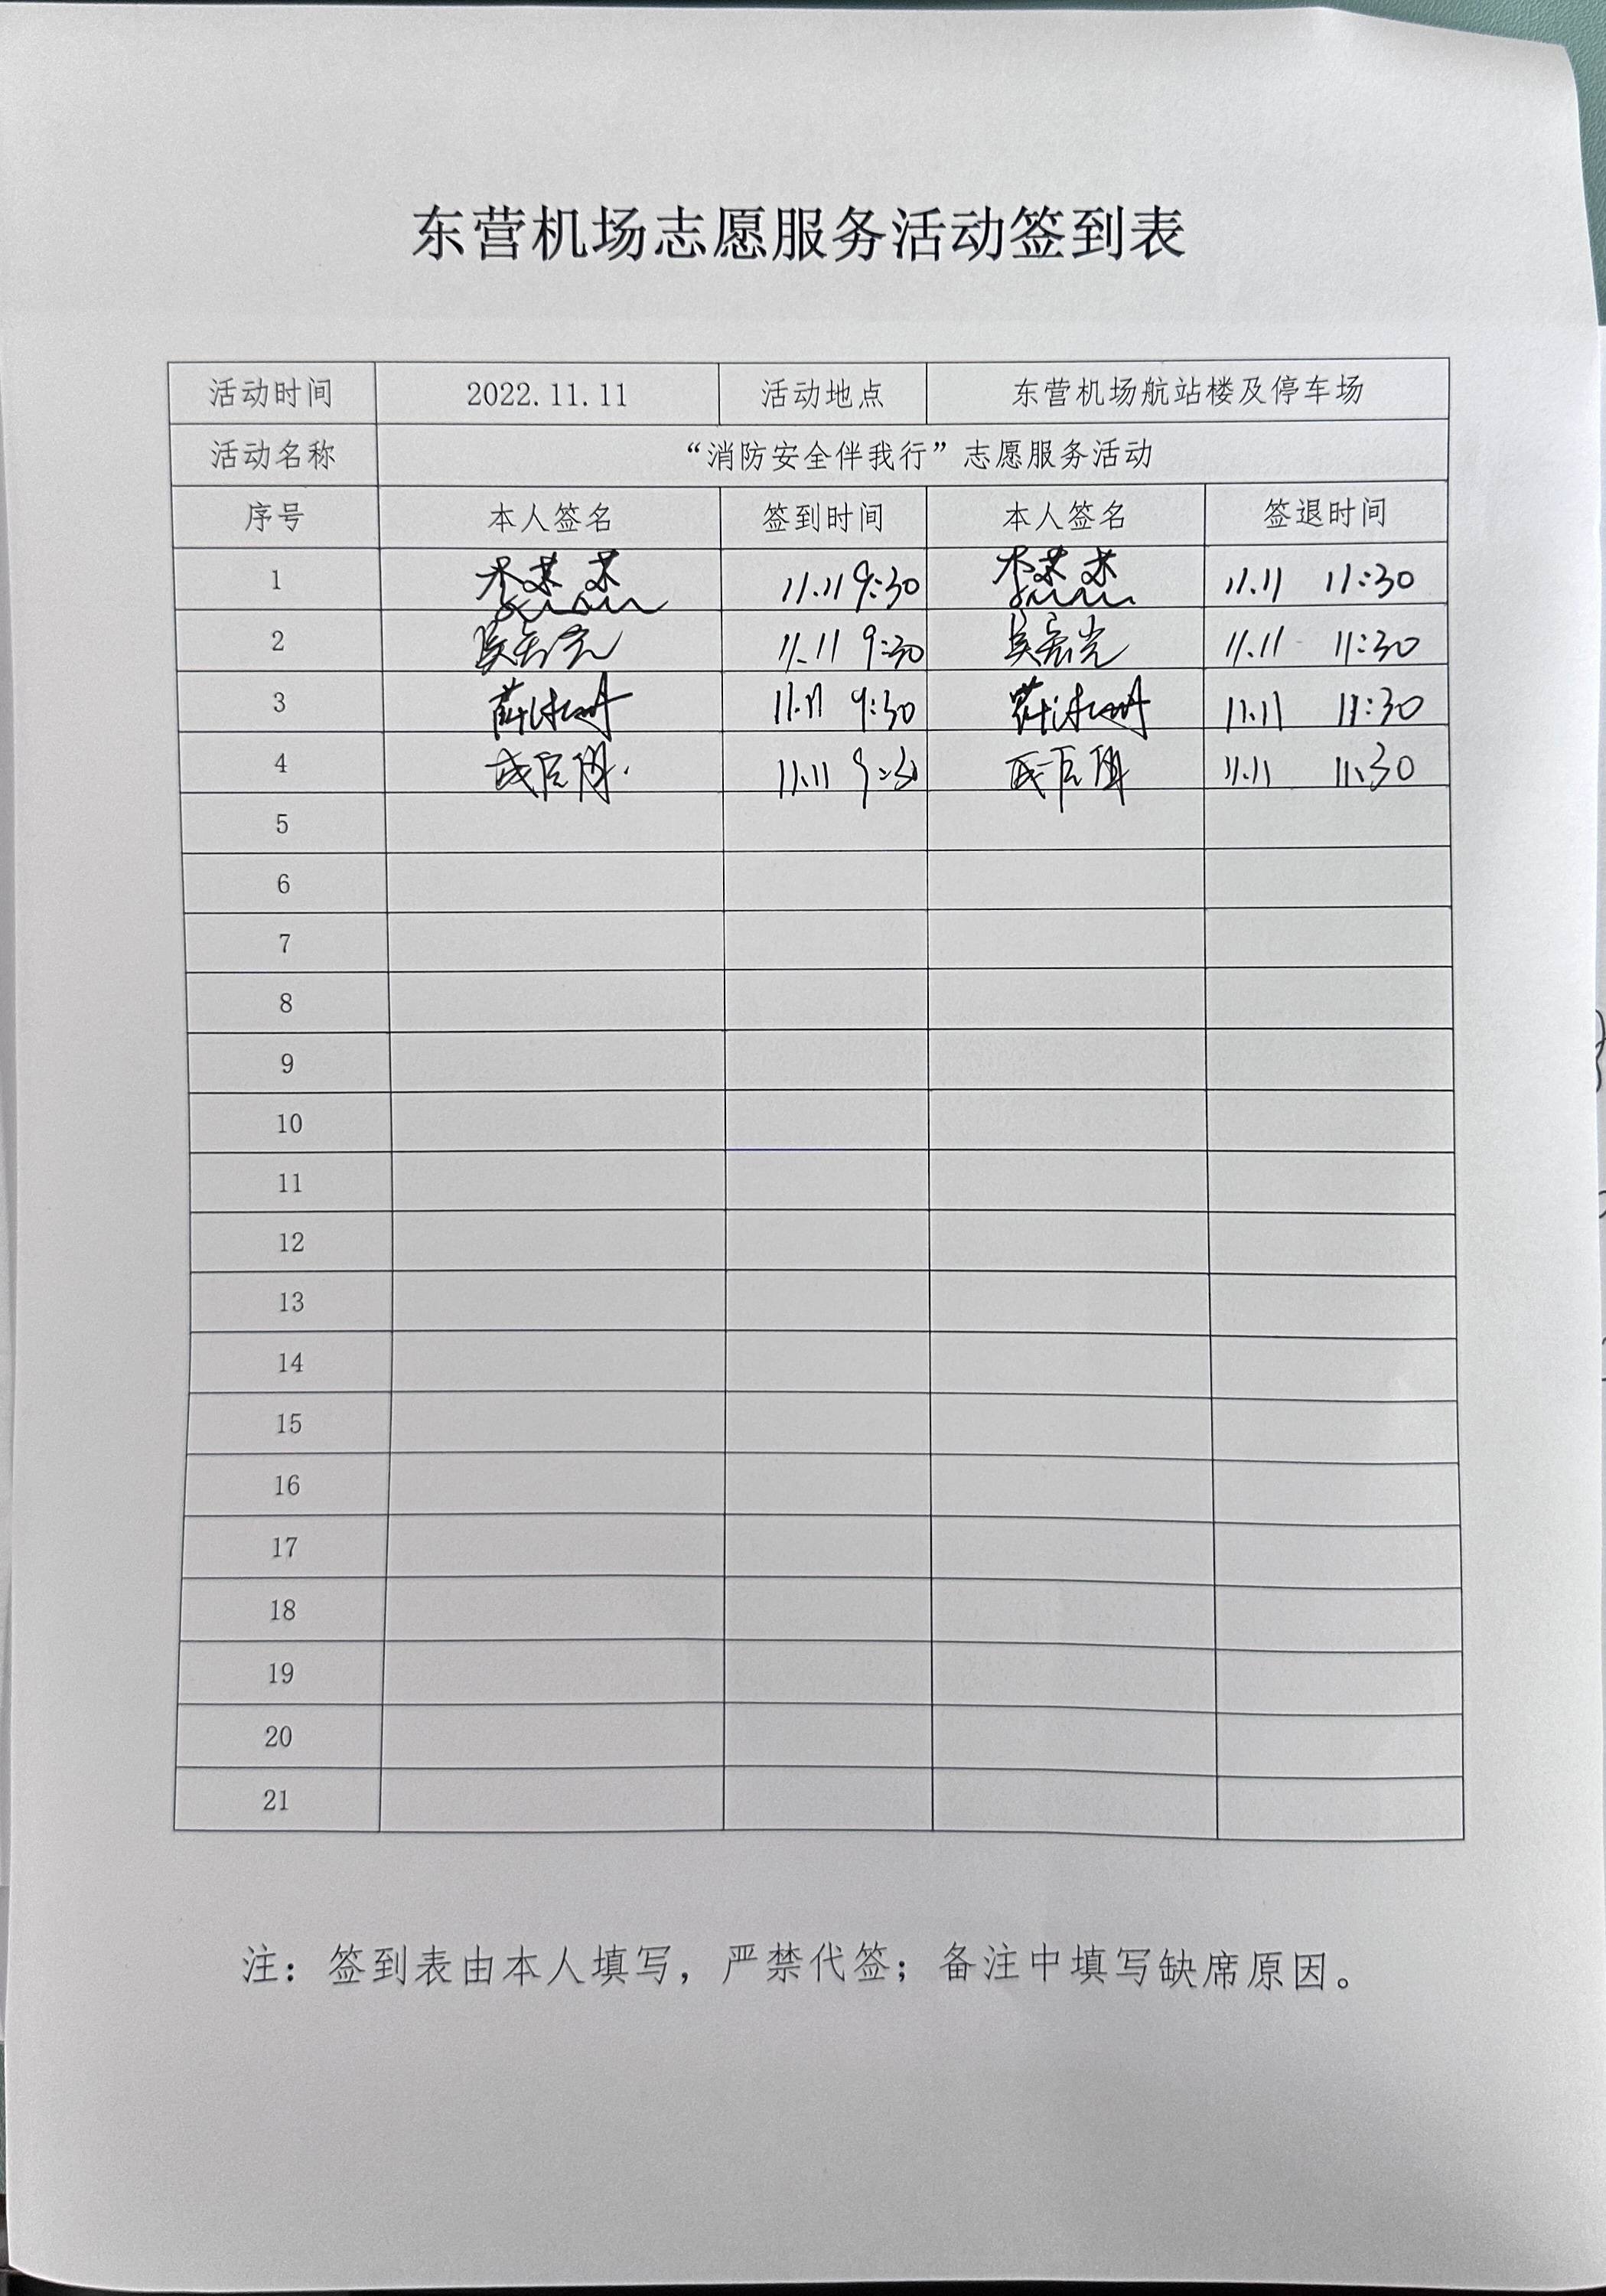 东营机场志愿服务活动签到表
活动时间 2022.11.11 活动地点 东营机场航站楼及停车场
活动名称 “消防安全伴我行”志愿服务活动
序号 本人签名 签到时间 本人签名 签退时间
1 11.11 9:30 11.11 11:30
2 11.11 9:30 11.11 11:30
3 11.11 9:30 11.11 11:30
4 11.11 9:30 11.11 11:30
5
6
7
8
9
10
11
12
13
14
15
16
17
18
19
20
21
注：签到表由本人填写，严禁代签；备注中填写缺席原因。